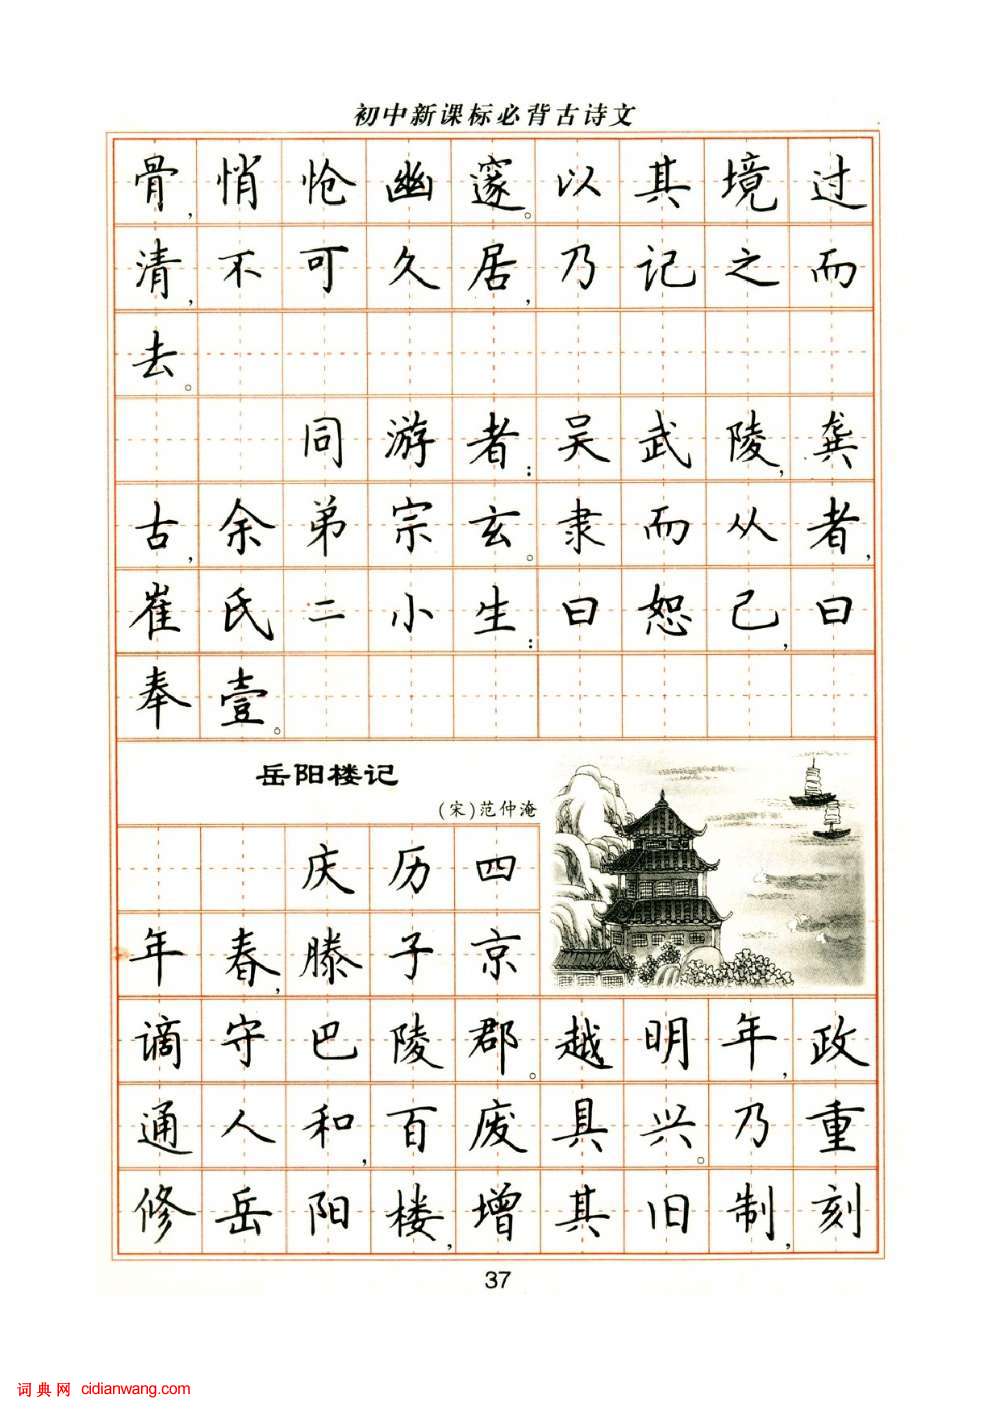 初中新课标必背古诗文
骨,悄怆幽邃。以其境过
清,不可久居,乃记之而
去。
同游者:吴武陵,龚
古,余弟宗玄。隶而从者,
崔氏二小生:曰恕己,曰
奉壹。
岳阳楼记
(宋)范仲淹
庆历四
年春,滕子京
谪守巴陵郡。越明年,政
通人和,百废具兴。乃重
修岳阳楼,增其旧制,刻
37
词典网 cidianwang.com